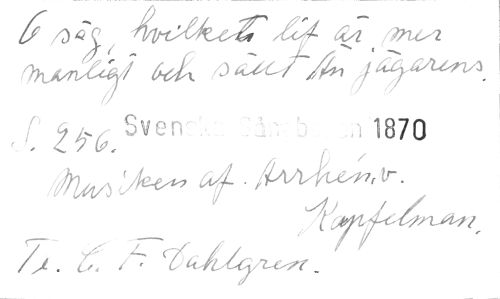 O säg, hvilket lif är mer
manligt och sällt än jägarens.
S. 256. Svenska Sångboken 1870
Musiken af. Arrhén. v.
Kapfelman.
Te. C. F. Dahlgren.